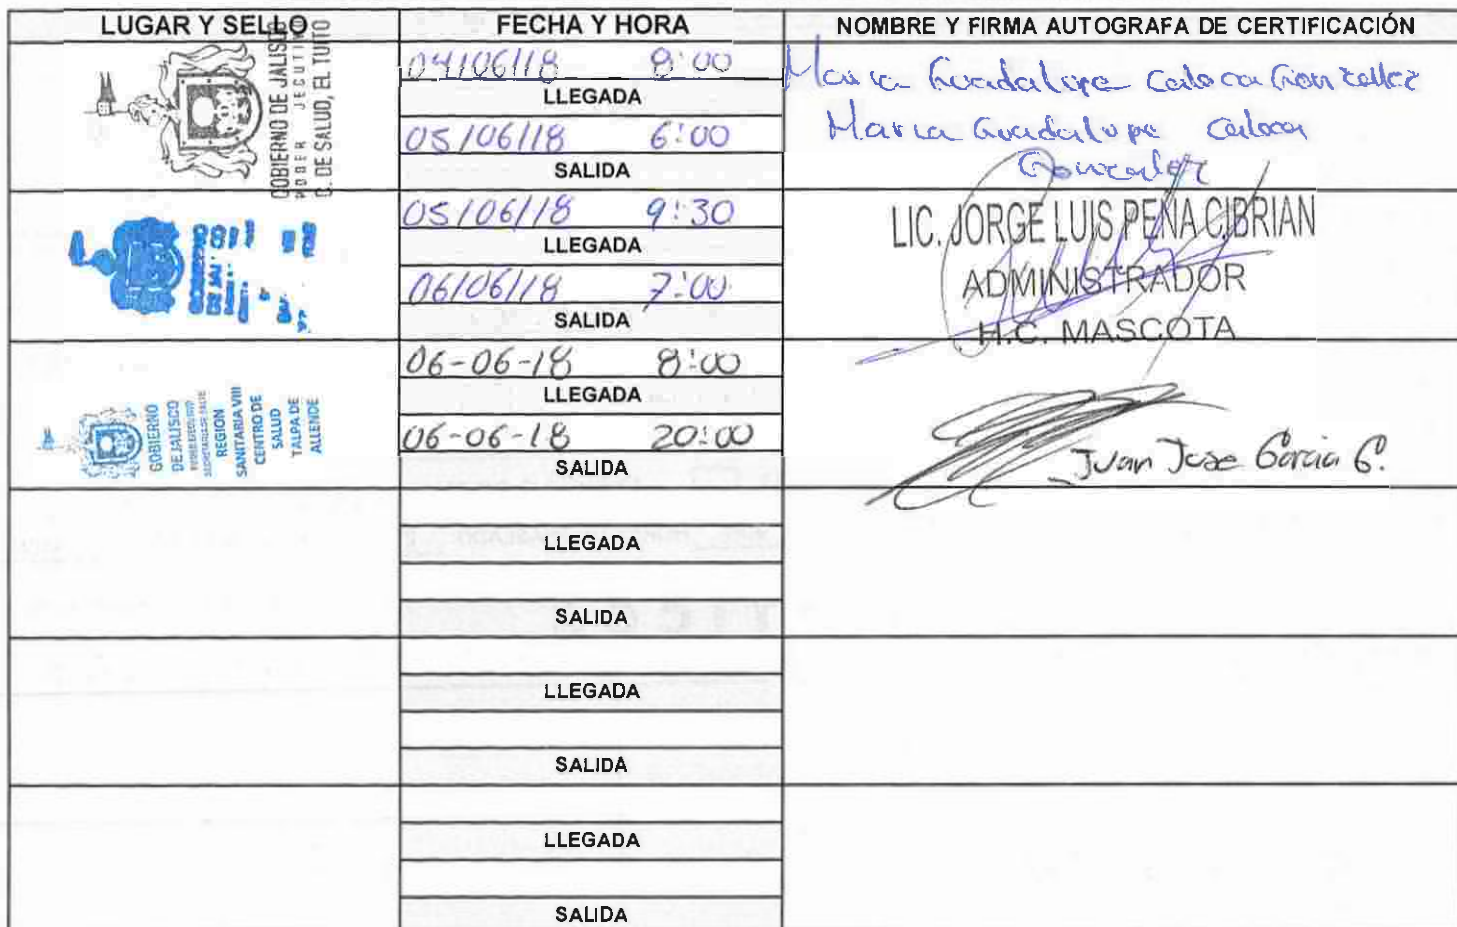 LUGAR Y SELLO FECHA Y HORA NOMBRE Y FIRMA AUTOGRAFA DE CERTIFICACIÓN
GOBIERNO DE JALISCO
C. DE SALUD, EL TUITO
04/06/18 8:00
LLEGADA
05/06/18 6:00
SALIDA
Maria Guadalupe Caloca Gonzalez
Maria Guadalupe Caloca
Gonzalez
05/06/18 9:30
LLEGADA
06/06/18 7:00
SALIDA
LIC. JORGE LUIS PEÑA CIBRIAN
ADMINISTRADOR
H.C. MASCOTA
GOBIERNO
DE JALISCO
REGION
SANITARIA VIII
CENTRO DE
SALUD
TALPA DE
ALLENDE
06-06-18 8:00
LLEGADA
06-06-18 20:00
SALIDA
Juan Jose Garcia G.
LLEGADA
SALIDA
LLEGADA
SALIDA
LLEGADA
SALIDA